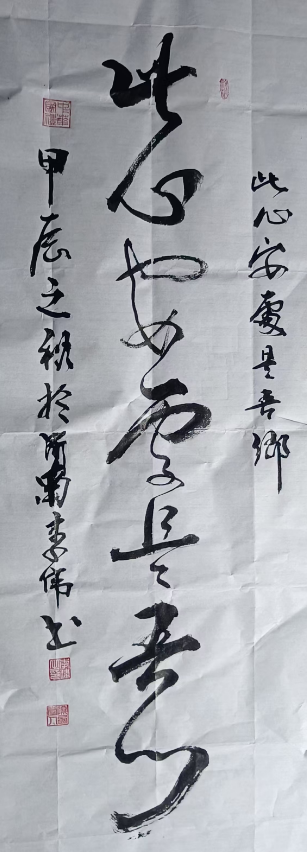 此心安處是吾鄉
此心安處是吾鄉
甲辰之秋於沂南李伟书